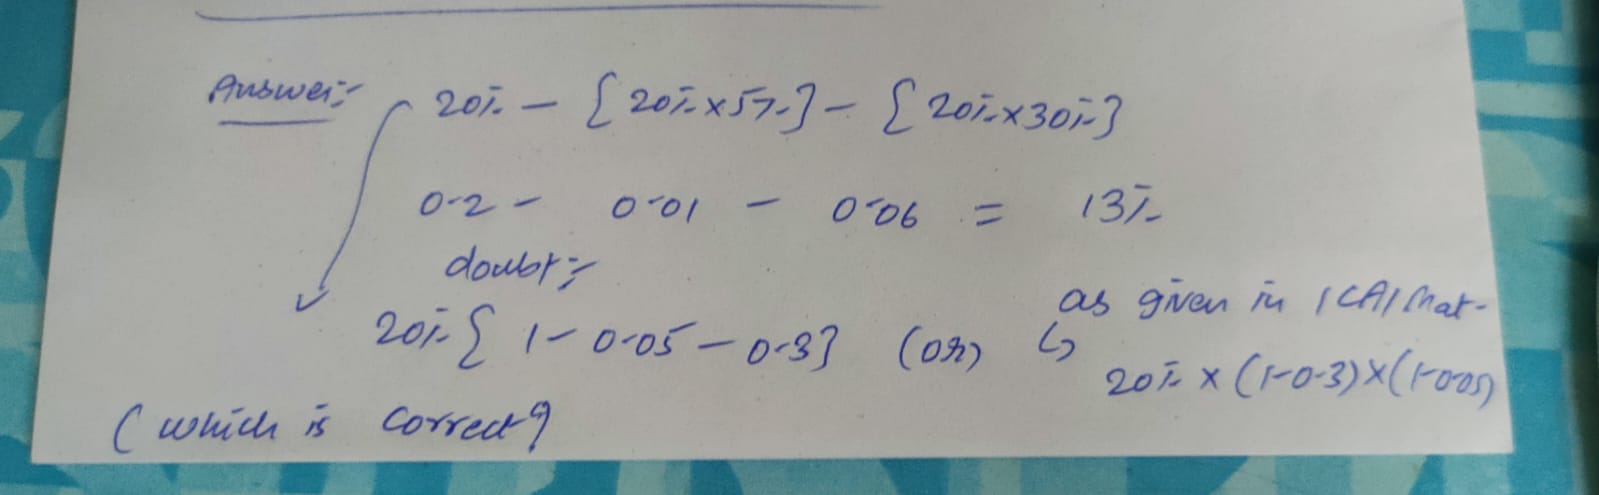 Answer:-
20% - { 20% x 5% } - { 20% x 30% }
0.2 - 0.01 - 0.06 = 13%
doubt:-
20% { 1 - 0.05 - 0.3 } (or) as given in ICAI Mat-
↳ 20% x (1-0.3) x (1-0.05)
( which is correct?